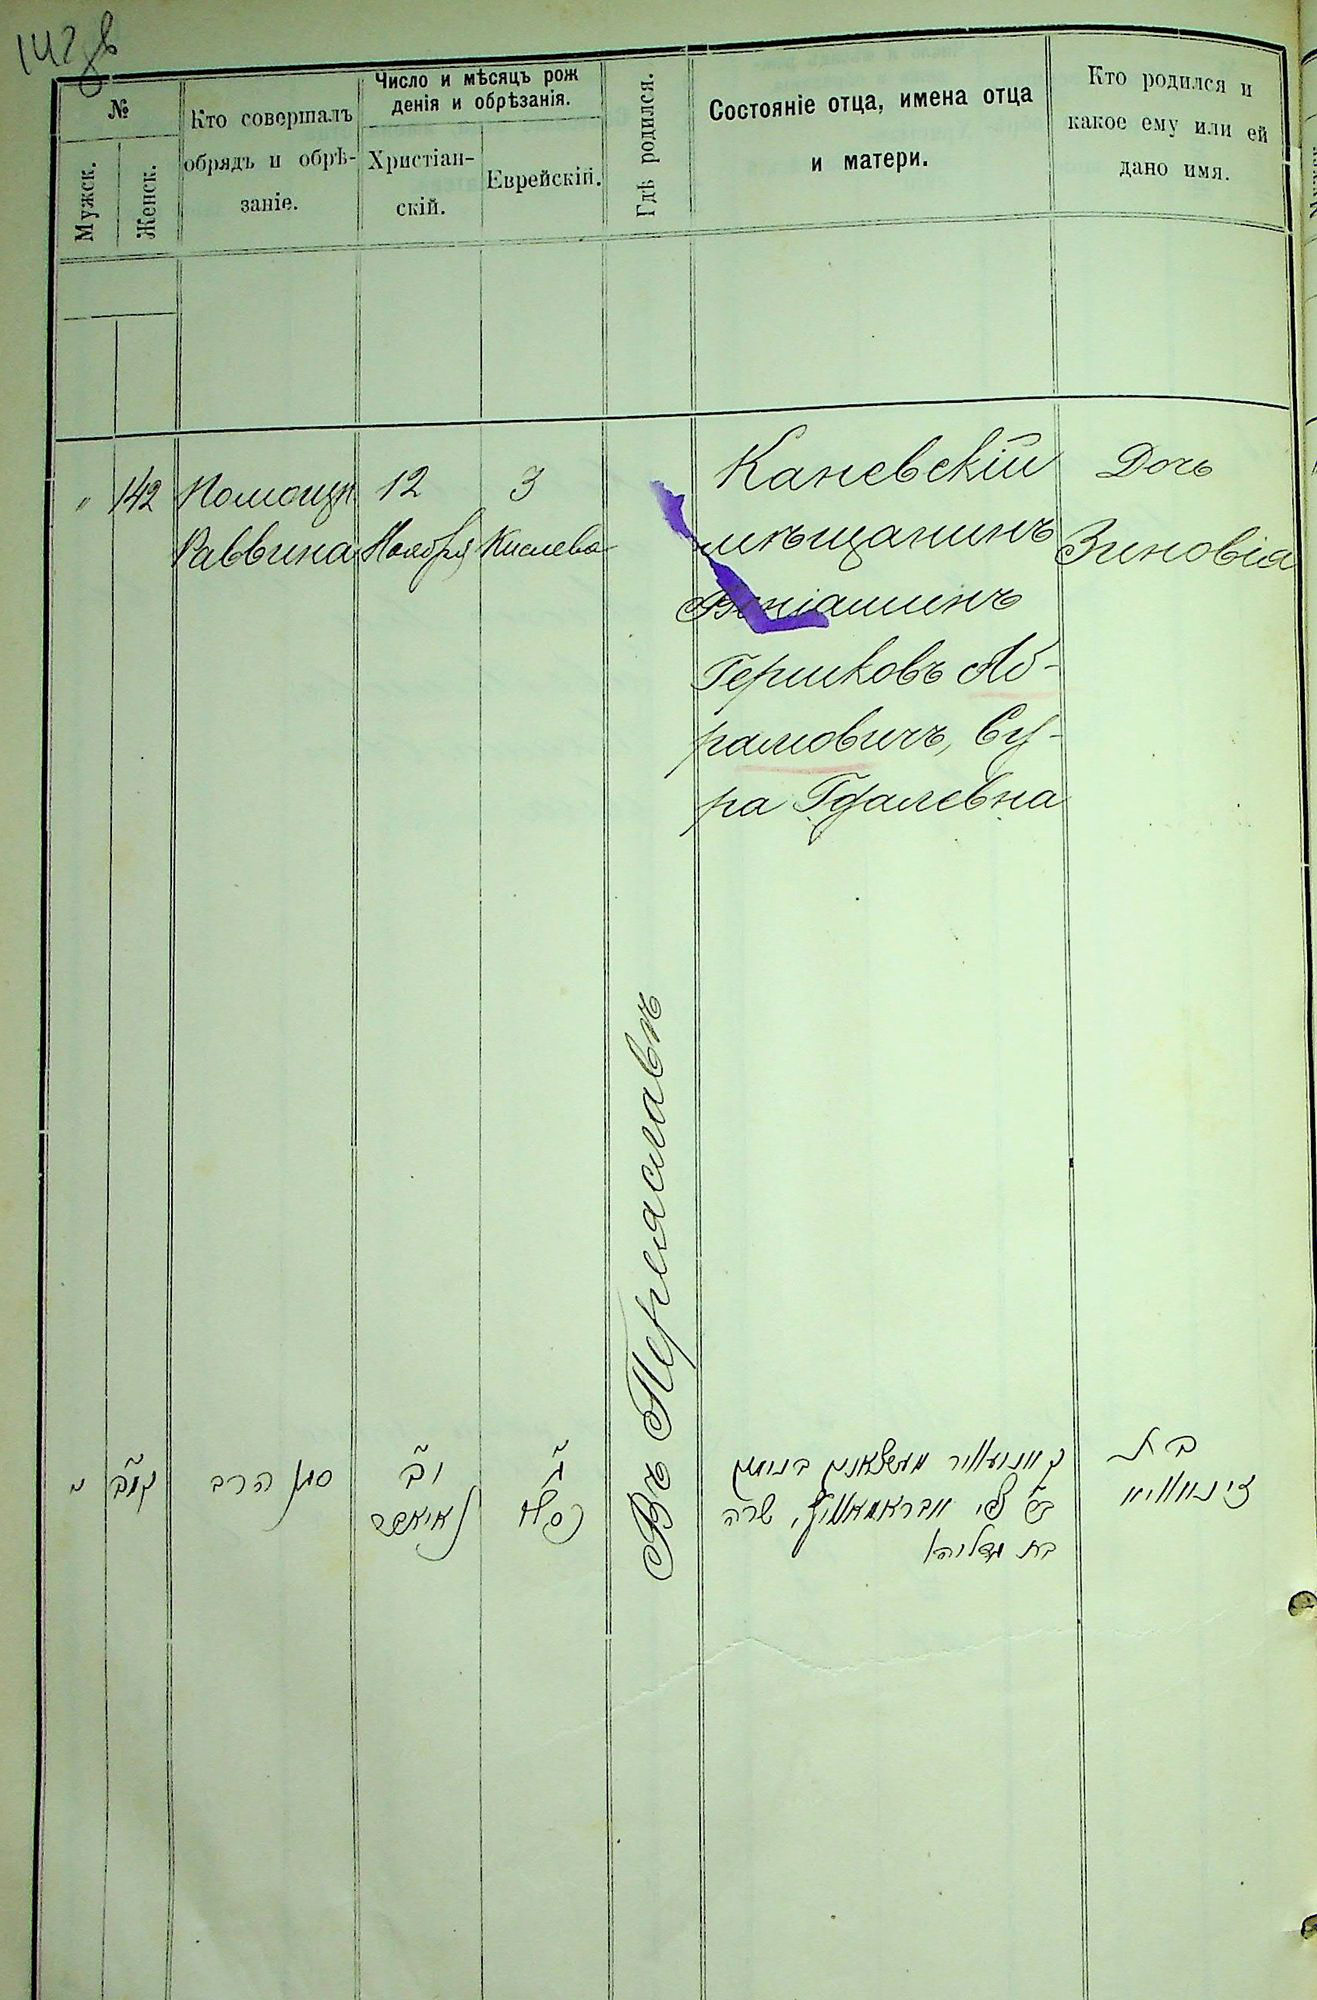 142
№
Мужск.
Женск.
Кто совершалъ
обрядъ и обрѣ-
заніе.
Число и мѣсяцъ рож
денія и обрѣзанія.
Христіан-
скій.
Еврейскій.
Гдѣ родился.
Состояніе отца, имена отца
и матери.
Кто родился и
какое ему или ей
дано имя.
"
142
Помощн
Раввина
12
Ноября
3
Кислева
Въ Переяславѣ
Каневскій
мѣщанинъ
Веніаминъ
Гершковъ Аб-
рамовичъ, Су-
ра Гдалевна
Дочь
Зиновія
"
קמב
סגן הרב
יב
נאיאבר
ג
כסלו
שרה
בת גדליה
בת